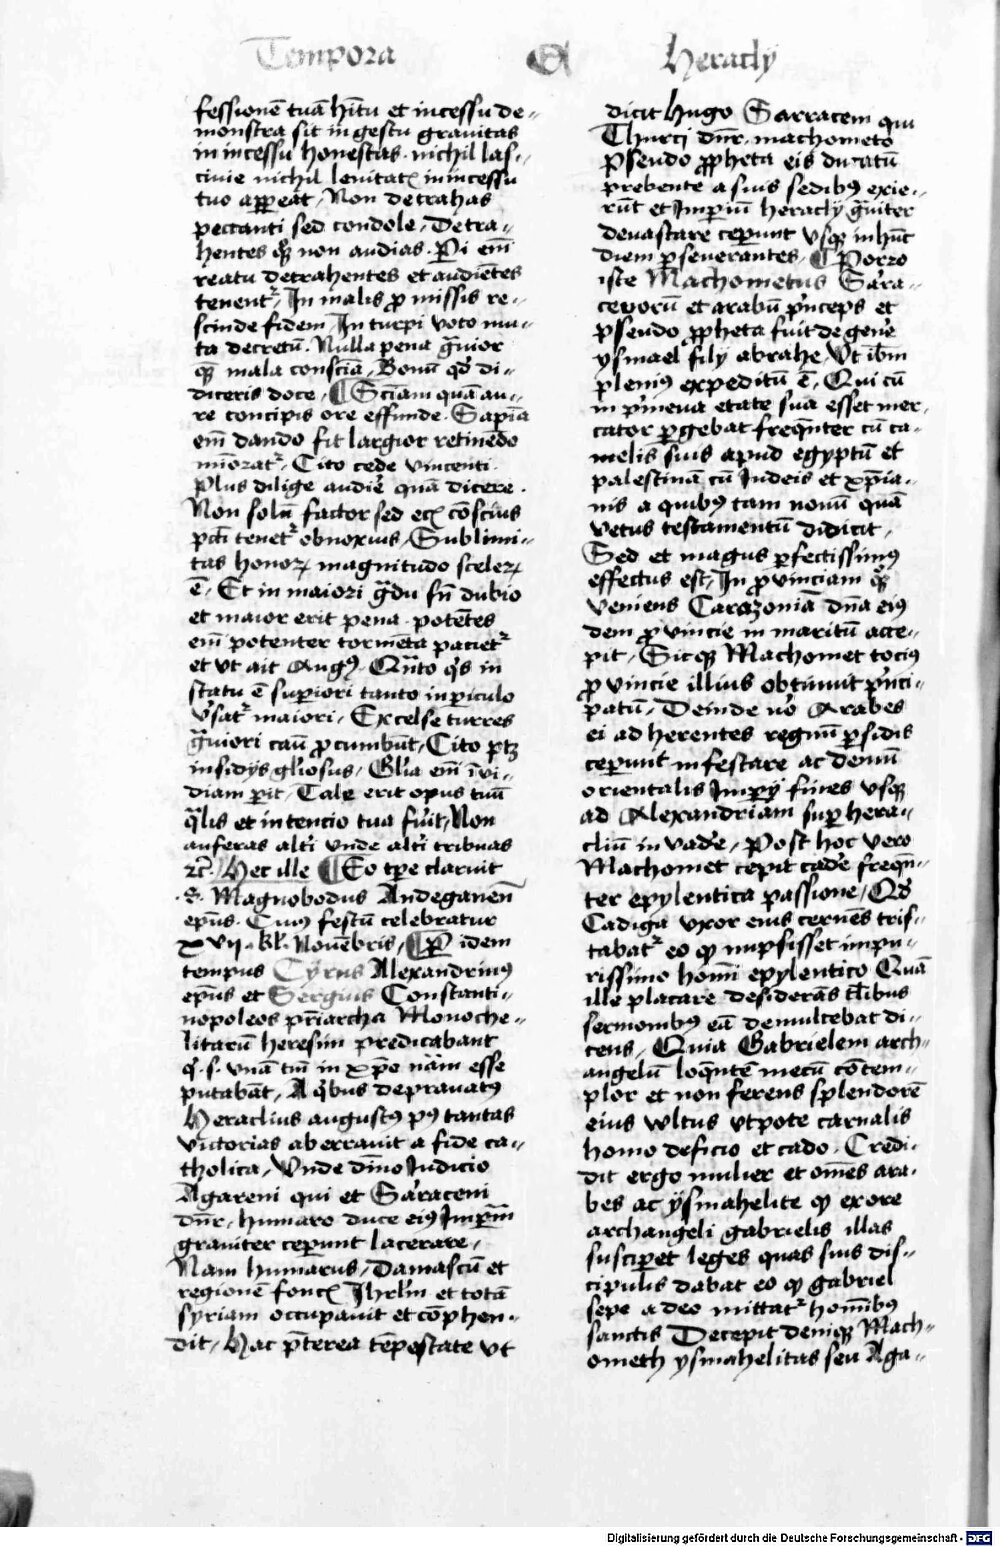 Tempora
Heracly
fessionē tuā hītu et incessu de-
monstra sit in gestu grauitas
in incessu honestas. nichil las-
ciuie nichil leuitatꝭ in incessu
tuo appeat, Non detrahas
peccanti sed condole, Detra-
hentes qꝫ non audias. Pi em̄
reatu detrahentes et audiētes
tenentr, In malis promissis re-
scinde fidem, In turpi voto mu-
ta decretū. Nulla pena grauior
qꝫ mala consciā, Bonū qd di-
diceris doce, Sciam quā au-
re concipis ore effunde. Sapiā
em̄ dando fit largior retinēdo
minoratr, Cito cede vincenti.
Plus dilige audire quā dicere.
Non solū factor sed eciā cōscius
pcti tenetr obnoxius, Sublimi-
tas honoꝝ magnitudo sceleꝝ
ē, Et in maiori gradu sn̄ dubio
et maior erit pena. potētes
em̄ potenter tormēta pacietr
et vt ait Augꝰ, Qnto qs in
statu ē superiori tanto in periculo
vsatr maiori, Excelse turres
grauiori casu procumbūt, Cito ptꝫ
insidijs gliosus, Glia em̄ īui-
diam perit, Tale erit opus tuū
qualis et intencio tua fuit, Non
auferas alti vnde alti tribuas
zc. Hec ille Eo tpe claruit
S. Magnobodus Andegauen̄
epūs. Cuius festū celebratur
xvij. kl. Nouēbris, P idem
tempus Cyrus Alexandrinꝰ
epūs et Sergius Constanti-
nopoleos pr̄iarcha Monoche-
litarū heresim predicabant
q. s. vnā tm̄ in xpo nām esse
putabāt, A qbus deprauatꝰ
Heraclius augustꝰ pꝰ tantas
victorias aberrauit a fide ca-
tholica, Vnde diuīo Iudicio
Agareni qui et Saraceni
dnr, humaro duce eiꝰ Imperiū
grauiter ceperunt lacerare,
Nam humarus, Damascū et
regionē foncꝭ Ihrlm et totā
syriam occupauit et cōphen-
dit, Hac pterea tēpestate vt
dicit Hugo Sarraceni qui
Thurci dnr. machometo
pseudo propheta eis ducatū
prebente a suis sedibꝰ exie-
rūt et Imperiū heracly grauiter
deuastare ceperunt vsqꝫ in hūc
diem perseuerantes, Porro
iste Machometus Sara-
cenorū et arabū prīceps et
pseudo propheta fuit de genē
ysmael filij abrahe, Vt ibm
pleniꝰ expeditū ē, Qui cū
in primeua etate sua esset mer-
cator pergebat frequēter cū ca-
melis suis apud egyptū et
palestinā cū Iudeis et xpia-
nis a quibꝰ tam nouū quā
vetus testamentū didicit,
Sed et magus perfectissimꝰ
effectus est, In prouinciam qꝫ
veniens Carozoniā dnā eiꝰ
dem prouincie in maritū acce-
pit, Sicqꝫ Machomet tociꝰ
prouincie illius obtinuit prīci-
patū, Deinde vo Arabes
ei adherentes regnū persidis
ceperunt infestare ac demū
orientalis Imperij fines vsqꝫ
ad Alexandriam super hera-
cliū inuadē, Post hoc vero
Machomet cepit cadē frequē-
ter epylentica passione, Qd
Cadiga vxor eius cernēs tris-
tabatr eo q̄ nupsisset impu-
rissimo homī epylentico Quā
ille placare desiderās talibus
sermonibꝰ eā demulcebat di-
cens, Quia Gabrielem arch-
angelū loquētē mecū cōtem-
plor et non ferens splendorē
eius wltus vtpote carnalis
homo deficio et cado. Credi-
dit ergo mulier et omēs ara-
bes ac ysmahelite q̄ ex ore
archangeli gabrielis illas
susciperet leges quas suis dis-
cipulis dabat eo q̄ gabriel
sepe a deo mittatr homībꝰ
sanctis Decepit deniqꝫ Mach-
ometh ysmahelitas seu Aga-
Digitalisierung gefördert durch die Deutsche Forschungsgemeinschaft - DFG